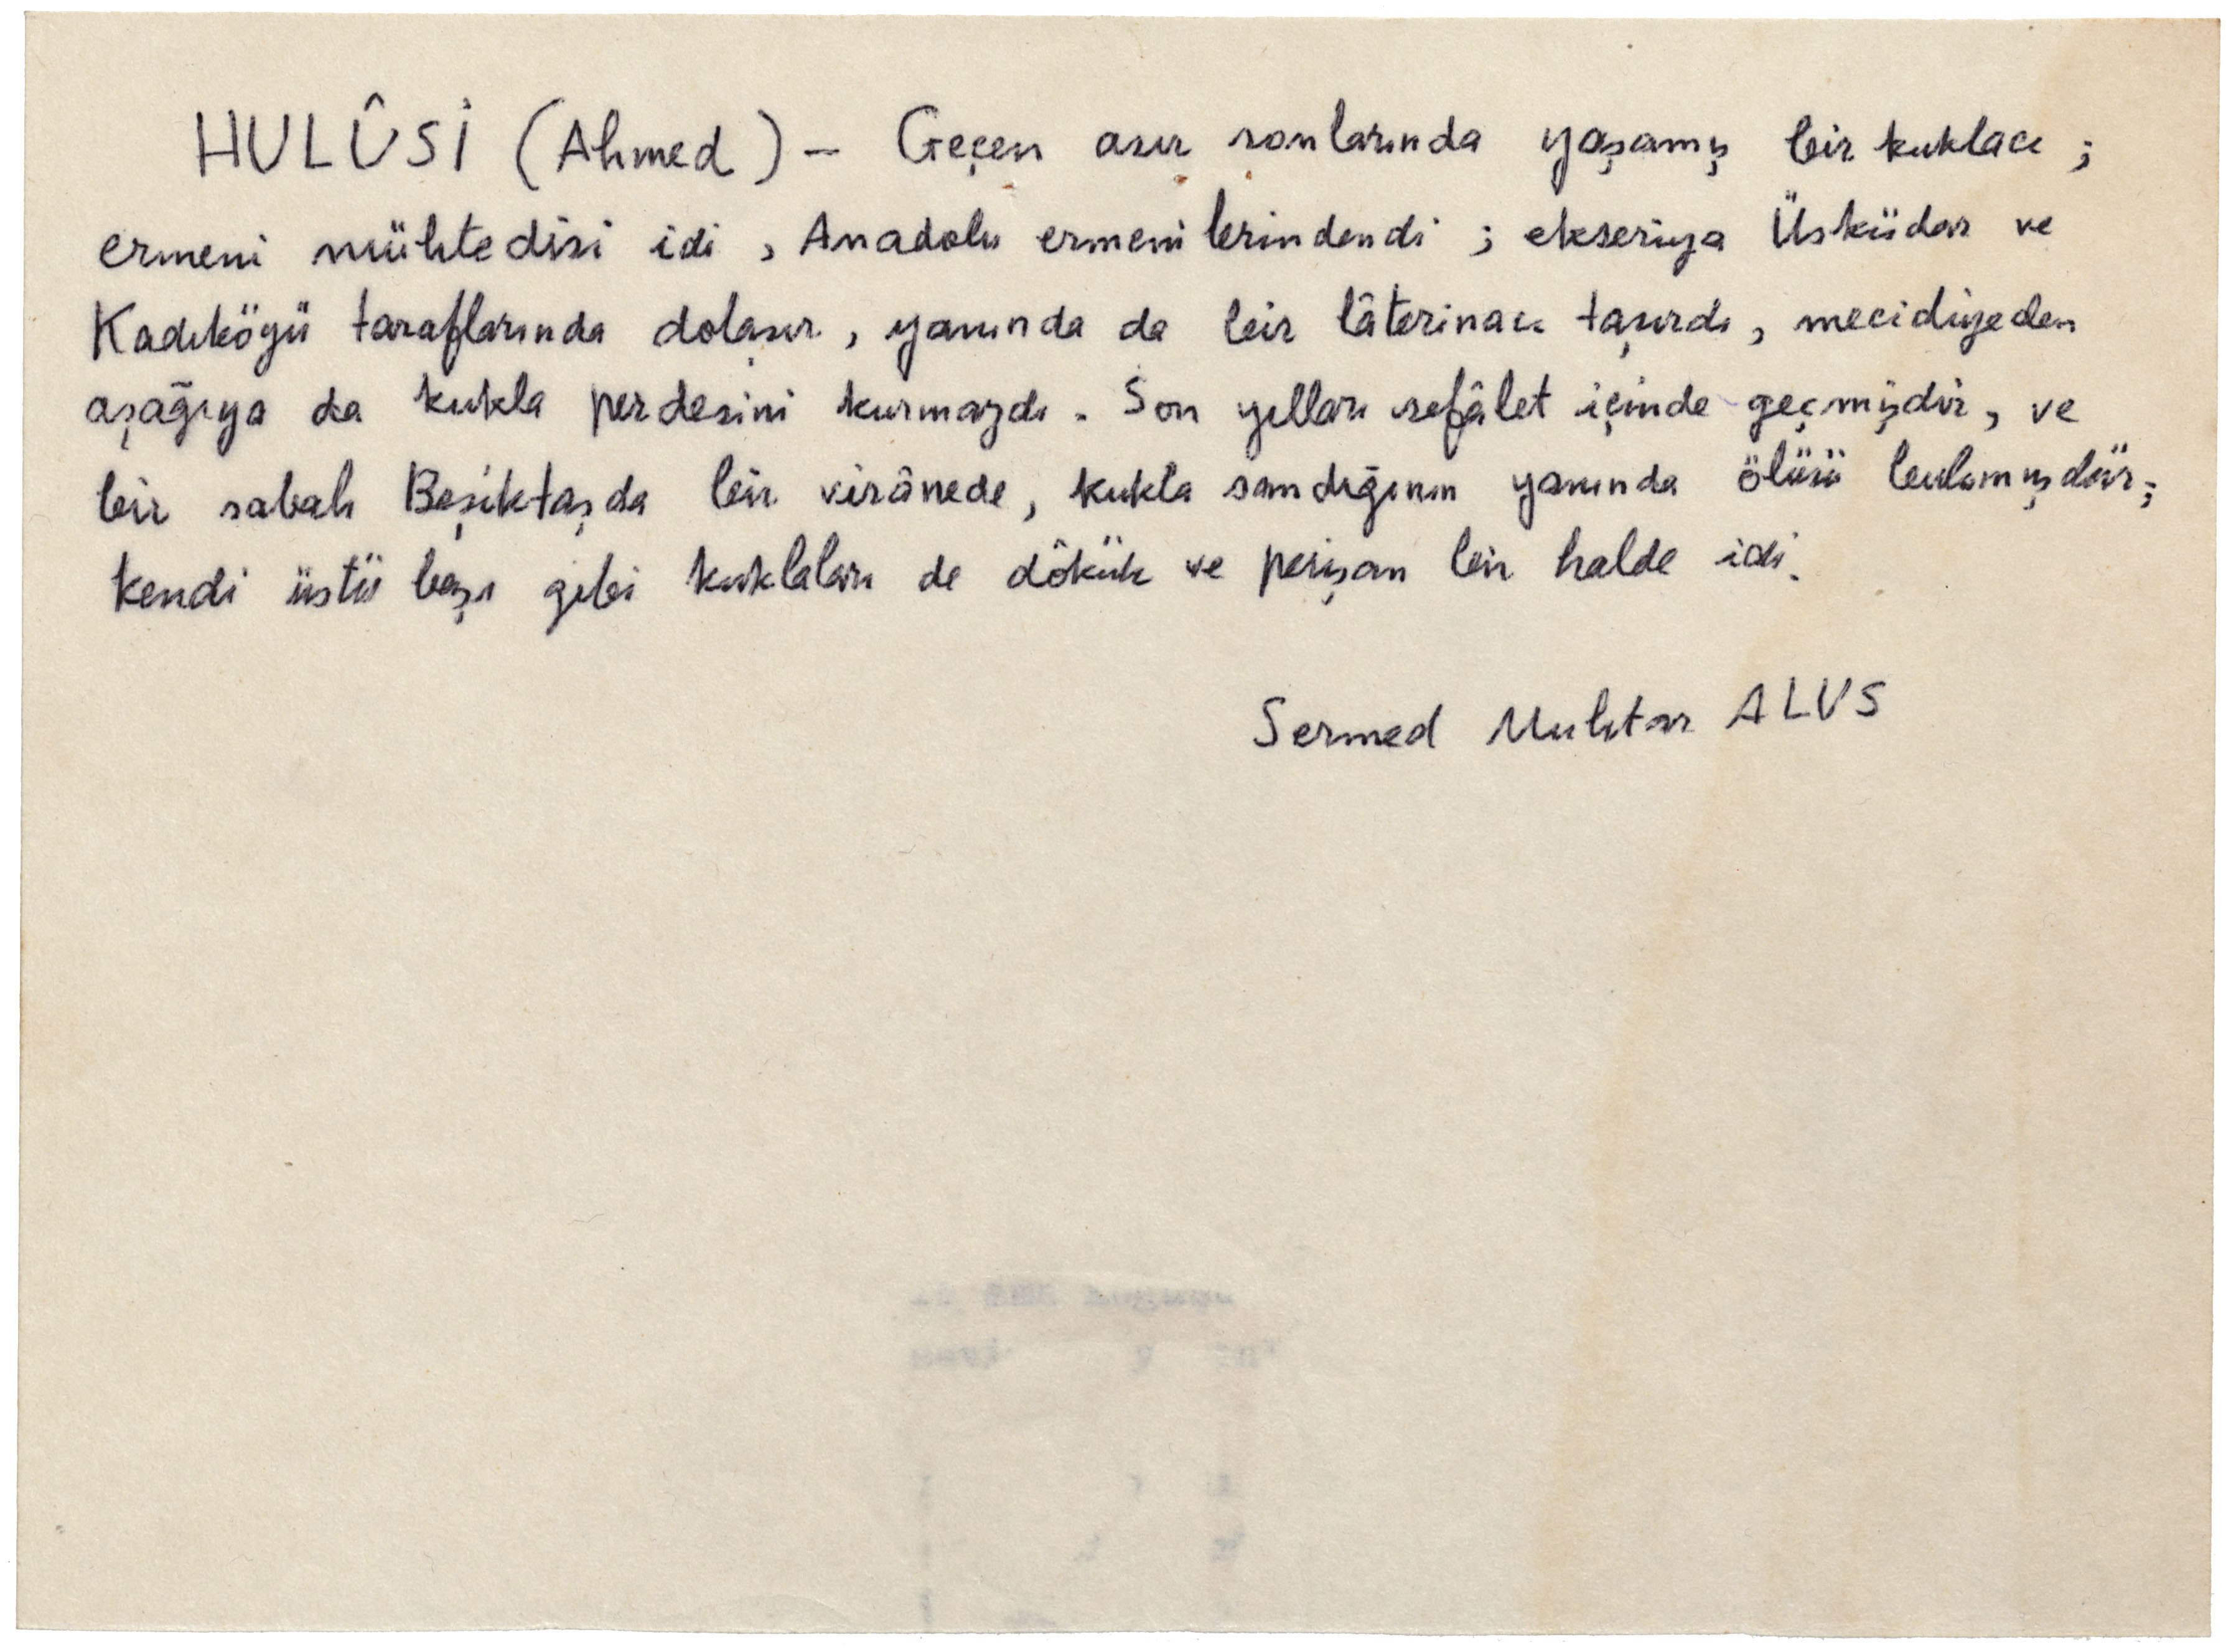 HULÛSİ (Ahmed) - Geçen asır sonlarında yaşamış bir kuklacı ;
ermeni mühtedisi idi , Anadolu ermenilerindendi ; ekseriya Üsküdar ve
Kadıköyü taraflarında dolaşır , yanında da bir lâternacı taşırdı , mecidiyeden
aşağıya da kukla perdesini kurmazdı . Son yılları sefâlet içinde geçmişdir , ve
bir sabah Beşiktaşda bir virânede , kukla sandığının yanında ölüsü bulunmuşdur ;
kendi üstü başı gibi kuklaları de dökük ve perişan bir halde idi .
Sermed Muhtar ALUS